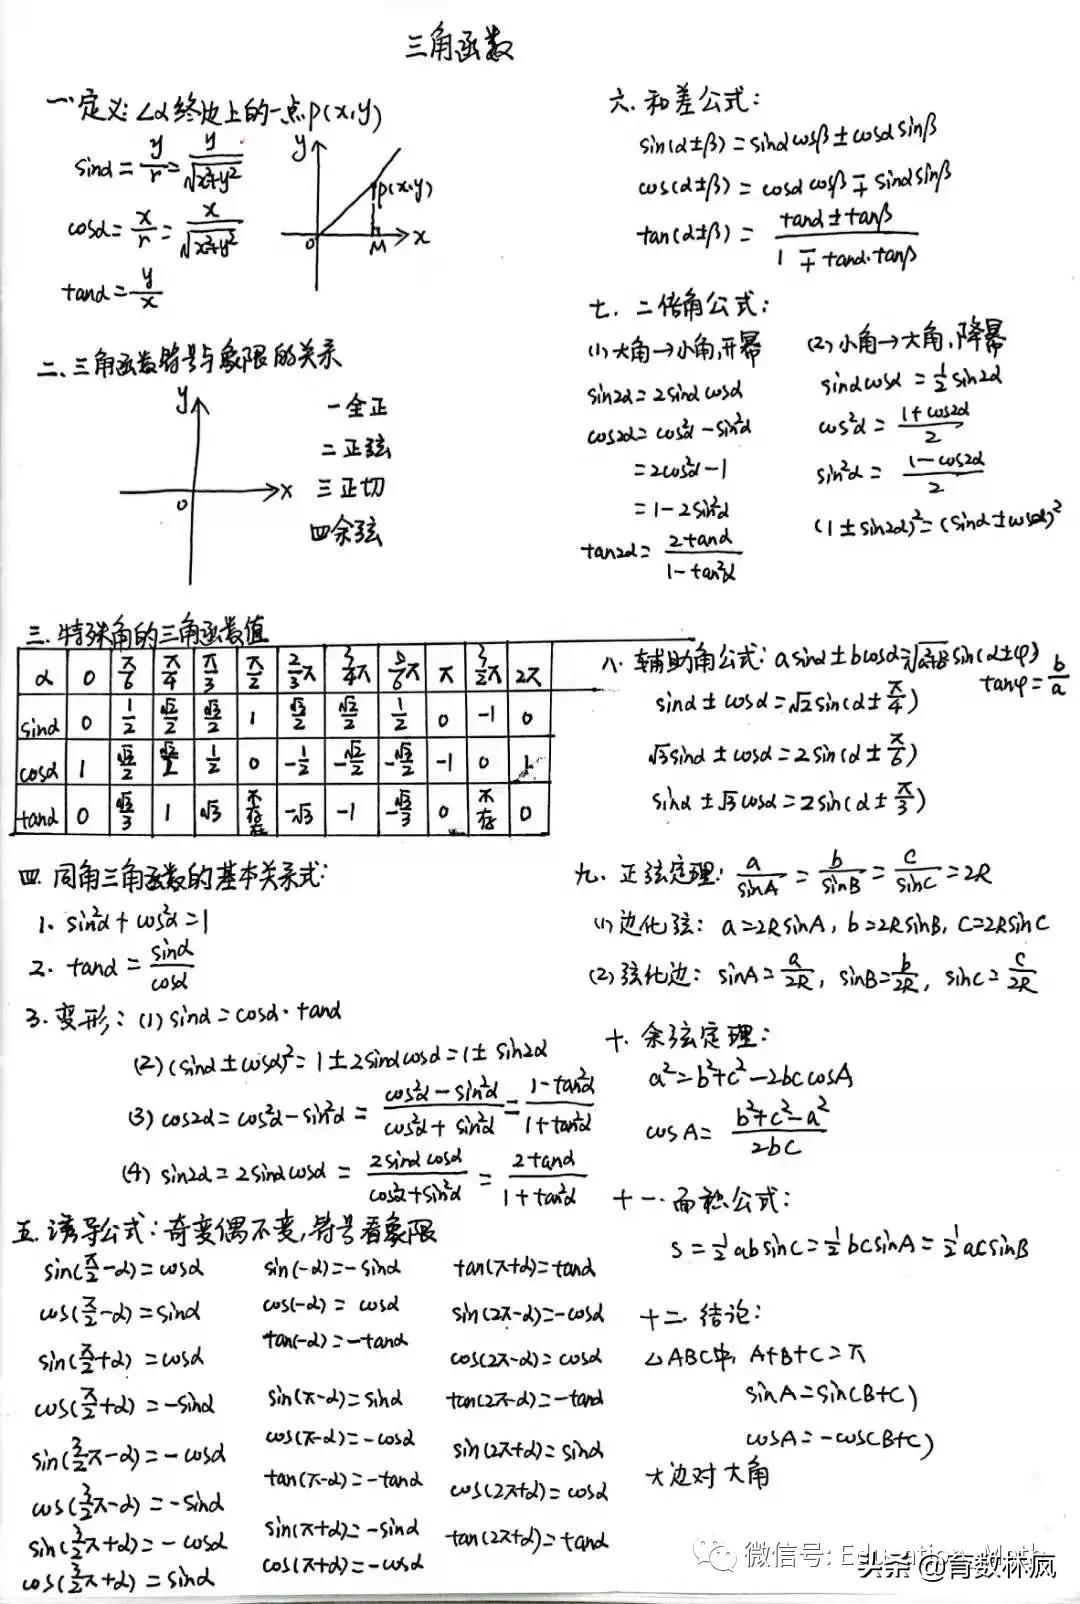 三角函数
一、定义: ∠α终边上的一点P(x,y)
sinα = y/r = y/√(x²+y²)
cosα = x/r = x/√(x²+y²)
tanα = y/x
y
P(x,y)
O M x
二、三角函数符号与象限的关系
y
O x
一全正
二正弦
三正切
四余弦
三、特殊角的三角函数值
α 0 π/6 π/4 π/3 π/2 2/3π 3/4π 5/6π π 3/2π 2π
sinα 0 1/2 √2/2 √3/2 1 √3/2 √2/2 1/2 0 -1 0
cosα 1 √3/2 √2/2 1/2 0 -1/2 -√2/2 -√3/2 -1 0 1
tanα 0 √3/3 1 √3 不存在 -√3 -1 -√3/3 0 不存 0
四、同角三角函数的基本关系式:
1. sin²α + cos²α = 1
2. tanα = sinα/cosα
3. 变形: (1) sinα = cosα·tanα
(2) (sinα ± cosα)² = 1 ± 2sinαcosα = 1 ± sin2α
(3) cos2α = cos²α - sin²α = (cos²α - sin²α)/(cos²α + sin²α) = (1 - tan²α)/(1 + tan²α)
(4) sin2α = 2sinαcosα = 2sinαcosα/(cos²α + sin²α) = 2tanα/(1 + tan²α)
五、诱导公式: 奇变偶不变,符号看象限
sin(π/2 - α) = cosα
cos(π/2 - α) = sinα
sin(π/2 + α) = cosα
cos(π/2 + α) = -sinα
sin(3/2π - α) = -cosα
cos(3/2π - α) = -sinα
sin(3/2π + α) = -cosα
cos(3/2π + α) = sinα
sin(-α) = -sinα
cos(-α) = cosα
tan(-α) = -tanα
sin(π-α) = sinα
cos(π-α) = -cosα
tan(π-α) = -tanα
sin(π+α) = -sinα
cos(π+α) = -cosα
tan(π+α) = tanα
sin(2π-α) = -cosα
cos(2π-α) = cosα
tan(2π-α) = -tanα
sin(2π+α) = sinα
cos(2π+α) = cosα
tan(2π+α) = tanα
六、和差公式:
sin(α±β) = sinαcosβ ± cosαsinβ
cos(α±β) = cosαcosβ ∓ sinαsinβ
tan(α±β) = (tanα ± tanβ)/(1 ∓ tanα·tanβ)
七、二倍角公式:
(1) 大角→小角,开幂
sin2α = 2sinαcosα
cos2α = cos²α - sin²α
= 2cos²α - 1
= 1 - 2sin²α
tan2α = 2tanα/(1 - tan²α)
(2) 小角→大角,降幂
sinαcosα = 1/2 sin2α
cos²α = (1 + cos2α)/2
sin²α = (1 - cos2α)/2
(1 ± sin2α)² = (sinα ± cosα)²
八、辅助角公式: asinα ± bcosα = √(a²+b²) sin(α±φ)
tanφ = b/a
sinα ± cosα = √2 sin(α ± π/4)
√3 sinα ± cosα = 2sin(α ± π/6)
sinα ± √3 cosα = 2sin(α ± π/3)
九、正弦定理: a/sinA = b/sinB = c/sinC = 2R
(1) 边化弦: a=2RsinA, b=2RsinB, c=2RsinC
(2) 弦化边: sinA = a/2R, sinB = b/2R, sinC = c/2R
十、余弦定理:
a² = b² + c² - 2bc cosA
cosA = (b² + c² - a²)/2bc
十一、面积公式:
S = 1/2 absinC = 1/2 bcsinA = 1/2 acsinB
十二、结论:
△ABC中, A+B+C = π
sinA = sin(B+C)
cosA = -cos(B+C)
大边对大角
微信号: Education Math
头条 @育数林疯